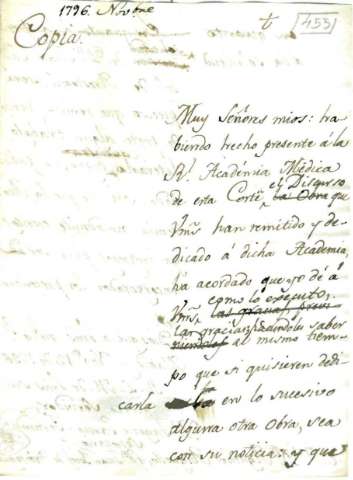 1796. Novbre
453
Copia.
Muy Señores mios: ha
biendo hecho presente á la
Rl. Académia Médica
el Discurso
de esta Corte, la Obra que
Vms. han remitido y de-
dicado á dicha Academia,
ha acordado que yo dé á
como lo executo,
Vms. las gracias,
las gracias, haciendoles saber
al mismo tiem-
po que si quisieren dedi-
carla en lo sucesivo
algurra otra Obra, sea
con su noticia: y que